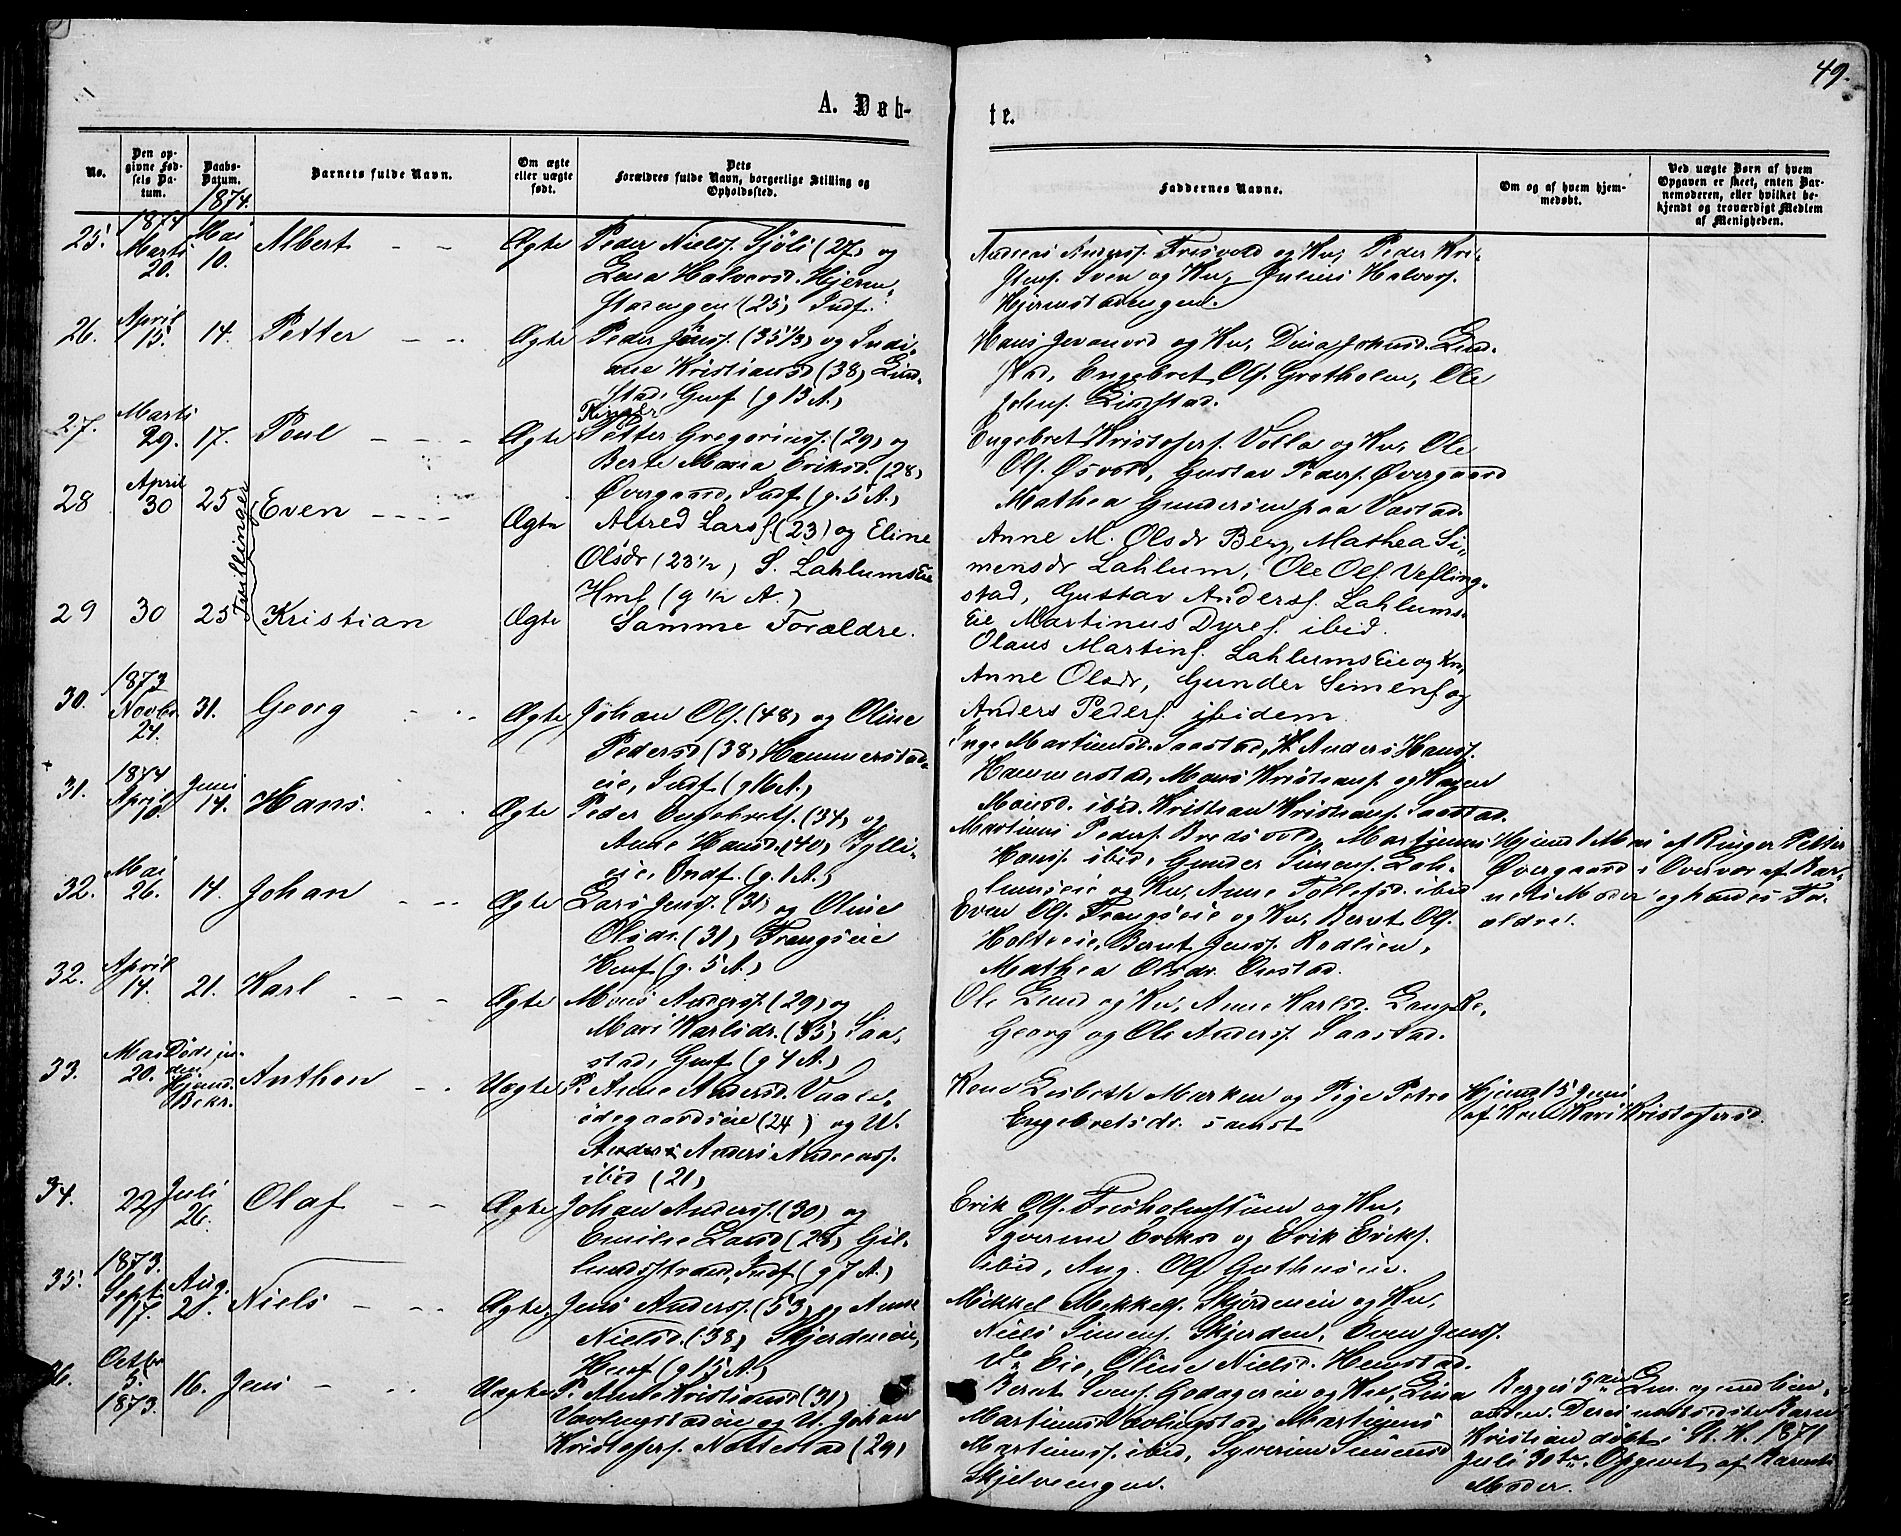 49.
A. Døb-
te.
No.
Den op-
givne Fød-
sels Da-
tum.
Daabs-
Datum.
Barnets fulde Navn.
Om ægte
eller uægte
født.
Dets
Forældres fulde Navn, borgerlige Stilling og
Opholdssted.
Faddernes Navne.
Om og af hvem hjem-
medøbt.
Ved uægte Børn af hvem
Opgaven er skeet, enten Bar-
nemoderen, eller hvilket be-
kjendt og troværdigt Medlem
af Menigheden.
1874.
25. 1874 Marts 20. Mai 10. Albert - - Ægte Peder Niels. Sjøli (27) og
Lina Halvorsd. Hjerm-
stadengen (25) Indf.
Andreas Frisvold og Kn, Peder Kri-
stens. Sven og Kn, Julius Halvors.
Hjermstadengen.
26. April 15. 14. Petter - - Ægte Peder Jens. (35 1/3) og Indi-
ane Kristiansd (38) Lind-
stad, Gmf (g 13 A.)
Hans og Kn, Dina Johnsd. Lind-
stad, Engebret Ols. Grotholm, Ole
Johns. Lindstad.
27. Marts 29. 17. Poul - - - Ægte Ringer
Petter Gregorius. (29) og
Berte Maria Eriksd. (28)
Øvergaard, Indf (g. 5 A.)
Engebret Kristofers. Volla og Kn, Ole
Ols. Gustav Peders. Øvergaard
Mathea Gundersen paa Vestad.
28 April 30 25 Tvillinger Even - - - - Ægte Alfred Lars. (23) og Eline
Olsdr (23 1/2) S. LahlumsEie
Hmf (g 1/2 A.)
Anne M. Olsdr Berg, Mathea Si-
mensdr Lahlum, Ole Ols Vefling-
stad, Gustav Anders. Lahlums-
Eie Martinus Dyres. ibid.
29 30 25 Kristian Ægte Samme Forældre.
Olaus Martins. LahlumsEie og Kn,
Anne Olsdr, Gunder Simens og
Anders Peders ibidem.
30. 1873 Novbr. 24. 31. Georg - - Ægte Johan Ols. (48) og Oline
Pedersd (38) Hammerstad-
eie, Indf (g 16 A.)
Inge Martinsd. Saastad, Anders Hans.
Hammerstad, Mons Kristians. og Karen
Monsd. ibid. Kristian Kristians. Saastad.
31. 1874 April 10. Juni 14. Hans. - - Ægte Peder Engebrets. (34) og
Anne Hansd. (40) Hylli-
eie, Indf. (g. 1 A.)
Martinus Peders. Bredsvold, Martinus
Hans. ibid, Gunder Simens. Lah-
lumseie og Kn, Anne Tollefsd. ibid
Hjemd 1 Mai af Ringer Petter
Øvergaard i Overvær af Bar-
nets Moder og hendes For-
ældre.
32. Mai 26. 14. Johan - - - Ægte Lars Jens. (31) og Oline
Olsdr. (31) Frengseie
Hmf (g. 5 A.)
Even Ols. Frengseie og Kn, Bernt Ols.
Holteeie, Bernt Jens. Rodlien,
Mathea Olsdr.
32. April 14. 21. Karl - - - Ægte Mons Anders. (29) og
Mari Karlsdr. (35) Saa-
stad, Gmf (g 4 A.)
Ole Lund og Kn, Anne Karlsd.
Georg og Ole Anders. Saastad.
33. Mai 20. Døde in-
den
Hjemd.
Bekr. Anthon - - Uægte P. Anne Andersd. Vaale-
ødegaardseie (24) og U.
Anders Andreas.
ibid (21)
Kone Lisbeth Marken og Pige Petra
Engebretsdr. samst
Hjemd 15 Juni
af Kone Kari Kristofersd.
34. 22 Juli 26. Olaf - - Ægte Johan Anders. (30) og
Emilie Larsd (28) Gil-
lundsstrand, Indf (g 7 A.)
Erik Ols. og Kn,
Syverine Eriksd og Erik Eriks.
ibid, Aug. Ols Guthuseie.
35. 1873. Sept. 17. Aug. 2. Niels - - - Ægte Jens Anders. (53) og Anne
Nielsd. (38) Skjerdeneie,
Hmf (g 15 A.)
Mikkel Mikkels. Skjerdeneie og Kn,
Niels Simens. Skjerden, Even Jens.
do Eie, Oline Nielsd. Hemstad.
36. Octbr 5. 1873. 16. Jens - - - Uægte P. Anne Kristiansd (31)
og U. Johan
Kristofers. Nøttestad (29)
Bernt Svens. Godagereie og Kn, Lina
Martinus Martinus
Martinus. ibid, Syverine Simensd
Skjelvengen.
Begges 5te
Deres næstsidste Barn
Kristian døbt i St. K. 1871
Juli 30te. Opgivet af Barnets
Moder.